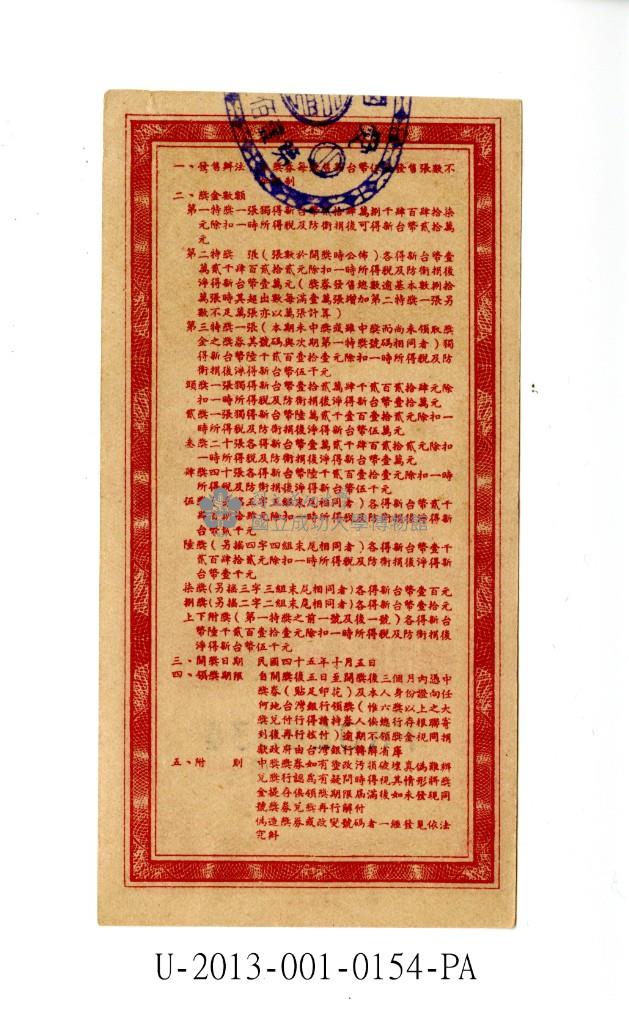 一、發售辦法 獎券每 售新台幣伍 發售張數不
制
二、獎金數額
第一特獎一張獨得新台幣 拾肆萬捌千肆百肆拾柒
元除扣一時所得稅及防衛捐後可得新台幣貳拾萬
元
第二特獎 張(張數於開獎時公佈)各得新台幣壹
萬貳千肆百貳拾貳元除扣一時所得稅及防衛捐後
淨得新台幣壹萬元(獎券發售總數逾基本數捌拾
萬張時其超出數每滿壹萬張增加第二特獎一張另
數不足萬張亦以萬張計算)
第三特獎一張(本期未中獎或雖中獎而尚未領取獎
金之獎券其號碼與次期第一特獎號碼相同者)獨
得新台幣陸千貳百壹拾壹元除扣一時所得稅及防
衛捐後淨得新台幣伍千元
頭獎一張獨得新台幣壹拾貳萬肆千貳百貳拾肆元除
扣一時所得稅及防衛捐後淨得新台幣壹拾萬元
貳獎一張獨得新台幣陸萬貳千壹百壹拾貳元除扣一
時所得稅及防衛捐後淨得新台幣伍萬元
叁獎二十張各得新台幣壹萬貳千肆百貳拾貳元除扣
一時所得稅及防衛捐後淨得新台幣壹萬元
肆獎四十張各得新台幣陸千貳百壹拾壹元除扣一時
所得稅及防衛捐後淨得新台幣伍千元
伍 五字五組末尾相同者)各得新台幣貳千
拾 元除扣一時所得稅及防衛捐後淨得新
台幣貳千元
國立成功大學博物館
陸獎(另搖四字四組末尾相同者)各得新台幣壹千
貳百肆拾貳元除扣一時所得稅及防衛捐後淨得新
台幣壹千元
柒獎(另搖三字三組末尾相同者)各得新台幣壹百元
捌獎(另搖二字二組末尾相同者)各得新台幣壹拾元
上下附獎(第一特獎之前一號及後一號)各得新台
幣陸千貳百壹拾壹元除扣一時所得稅及防衛捐後
淨得新台幣伍千元
三、開獎日期 民國四十五年十月五日
四、領獎期限 自開獎後五日至開獎後三個月內憑中
獎券(貼足印花)及本人身份證向任
何地台灣銀行領獎(惟六獎以上之大
獎兌付行得請持券人俟總行存根聯寄
到後再行核付)逾期不領獎金視同捐
獻政府由台灣銀行轉解省庫
五、附 則 中獎獎券如有塗改污損破壞真偽難辨
兌獎行認為有疑問時得視其情形將獎
金提存俟領獎期限屆滿後如未發現同
號獎券兌獎再行解付
偽造獎券或改變號碼者一經發見依法
究辦
U-2013-001-0154-PA